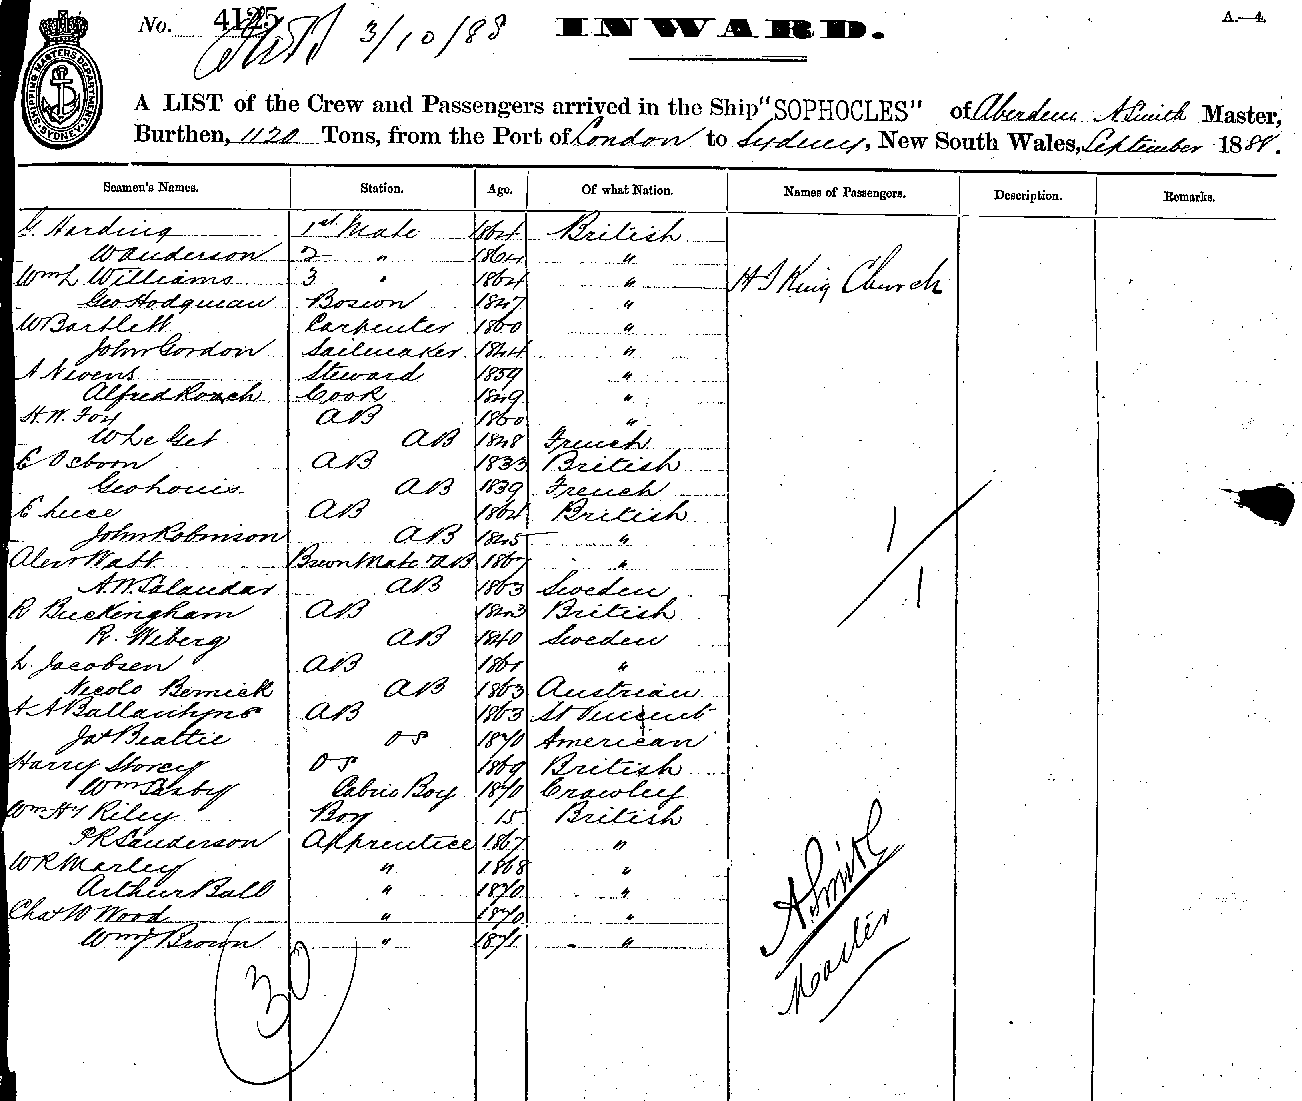 No. 4125
3/10/88
INWARD.
A.—4.
SHIPPING MASTERS DEPARTMENT SYDNEY
A LIST of the Crew and Passengers arrived in the Ship "SOPHOCLES" of Aberdeen A Smith Master,
Burthen, 1120 Tons, from the Port of London to Sydney, New South Wales, September 1888.
Seamen's Names. Station. Age. Of what Nation. Names of Passengers. Description. Remarks.
G. Harding 1st Mate 1864 British
W Anderson 2 " 1864 "
Wm L Williams 3 " 1864 "
H J King Church
Geo Hodgman Bosion 1847 "
W Bartlett Carpenter 1860 "
John Gordon Sailmaker 1844 "
A Nevens Steward 1859 "
Alfred Roach Cook 1849 "
H. W. Foy AB 1860 "
Whe Get AB 1848 French
E Osboon AB 1833 British
Geo Louis AB 1839 French
E Luce AB 1864 British
1
John Robinson AB 1845 "
Alexr Watt Bosun Mate & AB 1867 "
1
A. W. Salandar AB 1863 Sweden
R Buckingham AB 1843 British
R. Weberg AB 1840 Sweden
L. Jacobsen AB "
Nicolo Bernick AB 1863 Austrian
A A Ballantyne AB 1863 St Vincent
Jas Beattie OS 1870 American
Harry Storey OS 1869 British
Wm Saxby Cabin Boy 1870 Crawley
Wm Hy Riley Boy 15 British
P R Sanderson Apprentice 1867 "
W R Marley " 1868 "
Arthur Ball " 1870 "
Chas W Wood " 1870 "
Wm J Brown " 1871 "
30
A Smith
Master